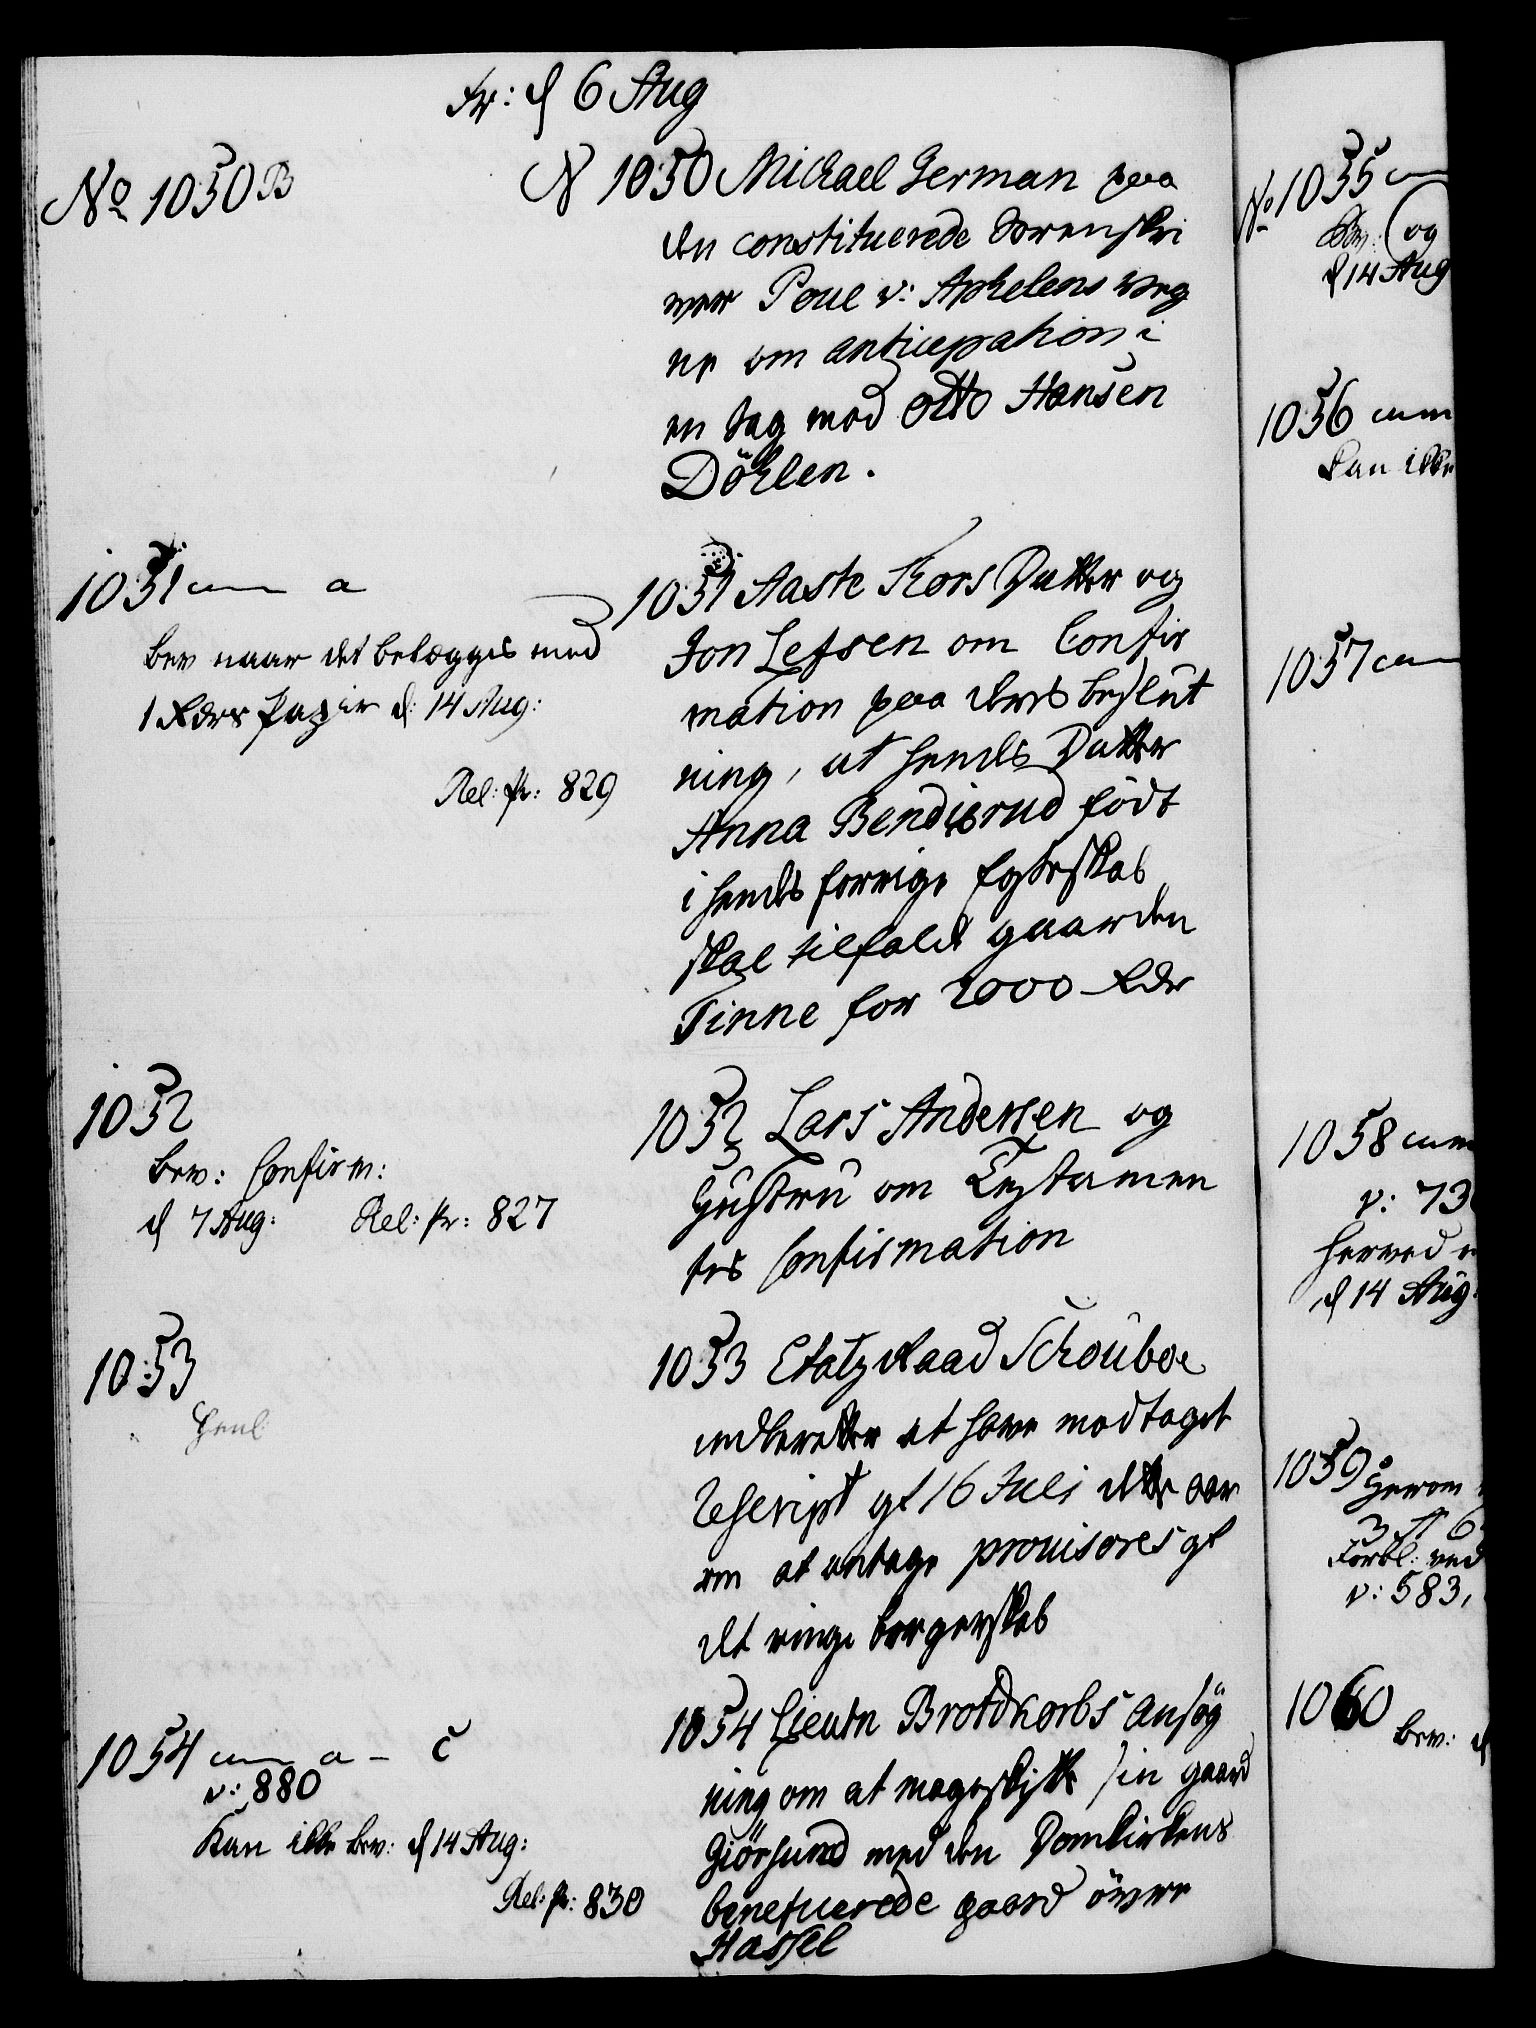 Fr: d 6 Aug
No 1050 B
N 1050 Michael German paa
den constituerede Sorenskri
wer Poul v: Aphelens weg
ne om anticipation i
en sag mod Otto Hansen
Döhlen.
1051 cum a
bew naar det belægges med
1 Rdrs papir d: 14 Aug:
Rel: pr: 829
1051 Aaste Thors Datter og
Jon Lefsen om Confir
mation paa deres beslut
ning, at hendes Datter
Anna Bendisrud födt
i hendes forrige Egteskab
skal tilfalde gaarden
Tinne for 2000 Rdr
1052
bew: Confirm:
d 7 Aug: Rel: pr: 827
1052 Lars Andersen og
Hustru om Testamen
tes Confirmation
1053
Henl:
1053 Etatz Raad Schouboe
indberetter at have modtaget
Rescript af 16 Juli dette aar
om at antage provisores af
det ringe borgerskab
1054 cum a - c
v: 880
Kan ikke bew: d 14 Aug:
Rel: pr: 830
1054 Lieutn Brotdkorbs ansög
ning om at mageskifte sin gaard
Giörsund med den Domkirkens
beneficerede gaard övre
Hassel
No 1055 cum
Bew: (og
d 14 Aug
1056 cum
kan ikke
1057 cum
1058 cum
v: 73
herved
d 14 Aug:
1059 herom
Forbl: ved
v: 583,
1060
bew: d